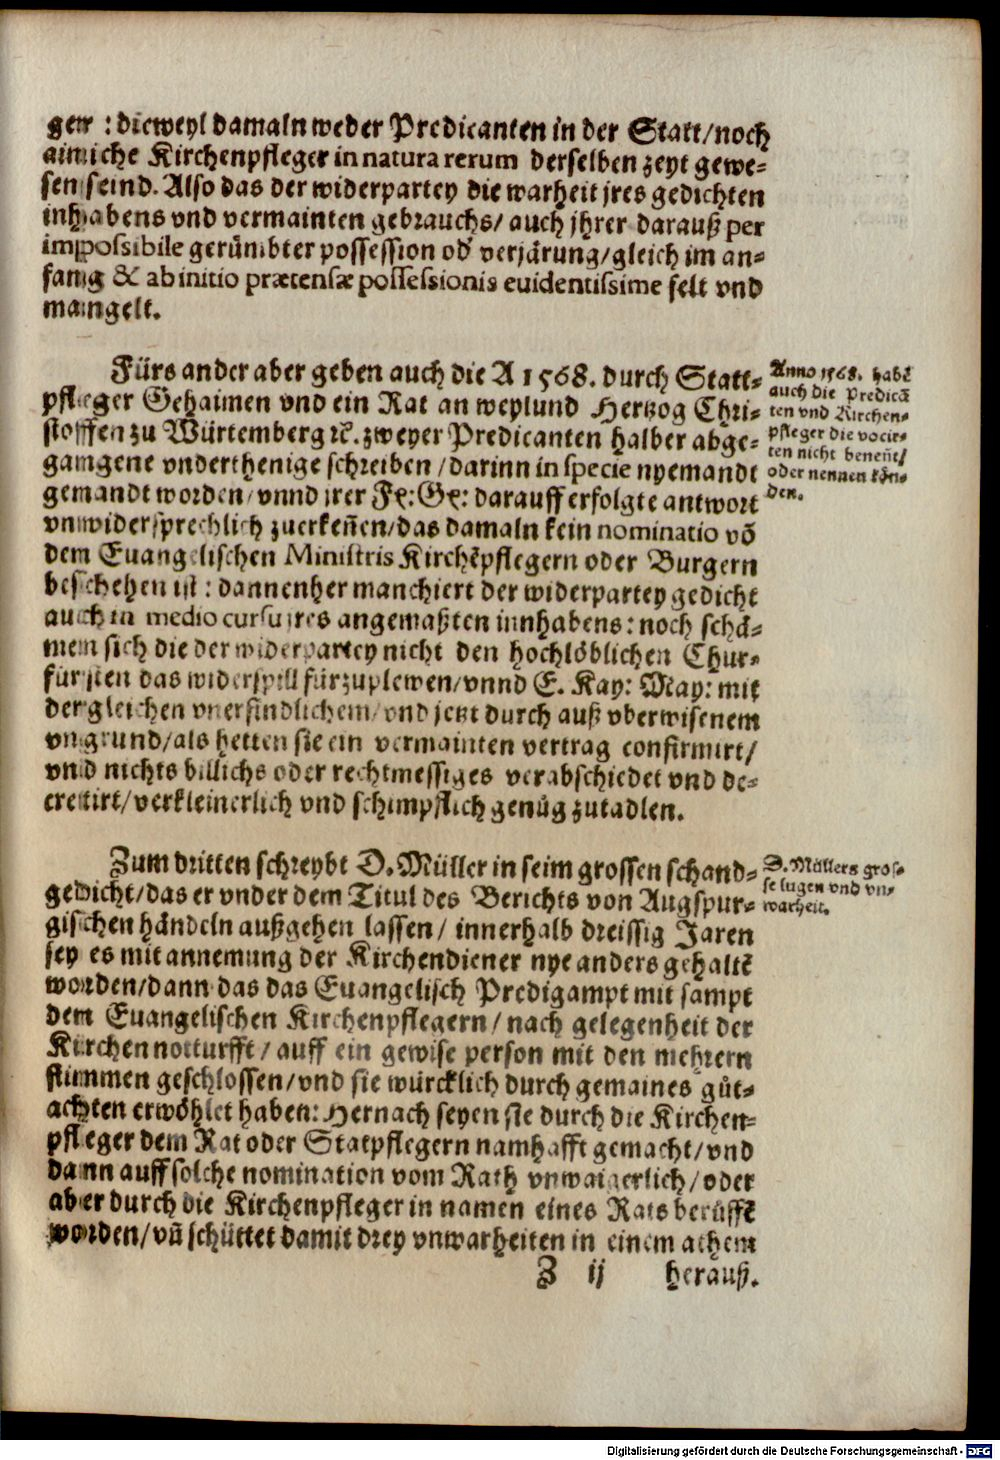 ger : dieweyl damaln weder Predicanten in der Statt/noch
ainiche Kirchenpfleger in natura rerum derselben zeyt gewe-
sen seind. Also das der widerpartey die warheit jres gedichten
inhabens vnd vermainten gebrauchs/ auch jhrer darauß per
impossibile gerümbter possession od' verjärung/gleich im an-
fang & ab initio prætensæ possessionis euidentissime felt vnd
mangelt.
Fürs ander aber geben auch die A 1568. durch Statt-
pfleger Gehaimen vnd ein Rat an weylund Hertzog Chri-
stoffen zu Würtemberg ꝛc. zweyer Predicanten halber abge-
gangene vnderthenige schreiben/darinn in specie nyemandt
genandt worden/vnnd irer Fe: Ge: darauff erfolgte antwort
vnwidersprechlich zuerkeñen/das damaln kein nominatio võ
dem Euangelischen Ministris Kirchẽpflegern oder Burgern
beschehen ist: dannenher manchiert der widerpartey gedicht
auch in medio cursu jres angemaßten innhabens: noch schä-
men sich die der widerpartey nicht den hochlöblichen Chur-
fürsten das widerspill fürzuplewen/vnnd E. Kay: May: mit
dergleichen vnerfindlichem/vnd jetzt durch auß vberwisenem
vngrund/als hetten sie ein vermainten vertrag confirmirt/
vnd nichts billichs oder rechtmessiges verabschiedet vnd de-
cretirt/verkleinerlich vnd schimpflich genůg zutadlen.
Anno 1568. habẽ
auch die Predicã
ten vnd Kirchen-
pfleger die vocir-
ten nicht beneñt/
oder nennen kön-
den.
Zum dritten schreybt D. Müller in seim grossen schand-
gedicht/das er vnder dem Titul des Berichts von Augspur-
gischen händeln außgehen lassen/ innerhalb dreissig Jaren
sey es mit annemung der Kirchendiener nye anders gehaltẽ
worden/dann das das Euangelisch Predigampt mit sampt
dem Euangelischen Kirchenpflegern/nach gelegenheit der
Kirchen notturfft/auff ein gewise person mit den mehrern
stimmen geschlossen/vnd sie würcklich durch gemaines gůt-
achten erwöhlet haben: Hernach seyen sie durch die Kirchen-
pfleger dem Rat oder Statpflegern namhafft gemacht/vnd
dann auff solche nomination vom Rath vnwaigerlich/oder
aber durch die Kirchenpfleger in namen eines Rats berůffẽ
worden/vñ schüttet damit drey vnwarheiten in einem athem
D. Müllers gros-
se lugen vnd vn-
warheit.
Z ij herauß.
Digitalisierung gefördert durch die Deutsche Forschungsgemeinschaft - DFG